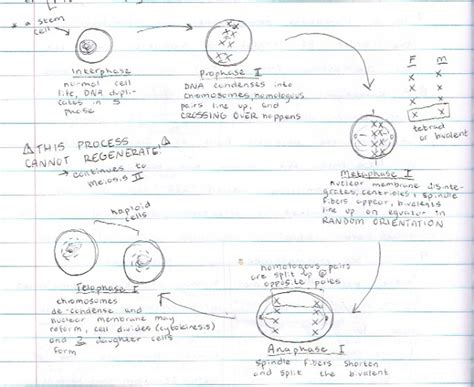 * a stem
cell
Interphase
normal cell
life, DNA dupli-
cates in S
phase
Prophase I
DNA condenses into
chromosomes, homologous
pairs line up, and
CROSSING OVER happens
F M
tetrad
or bivalent
THIS PROCESS
CANNOT REGENERATE!
→ continues to
meiosis II
Metaphase I
nuclear membrane disinte-
grates, centrioles + spindle
fibers appear, bivalents
line up on equator in
RANDOM ORIENTATION
haploid
cells
Telophase I
chromosomes
de-condense and
nuclear membrane may
reform, cell divides (cytokinesis)
and 2 daughter cells
form
homologous pairs
are split up @
opposite poles
Anaphase I
spindle fibers shorten
and split the bivalent